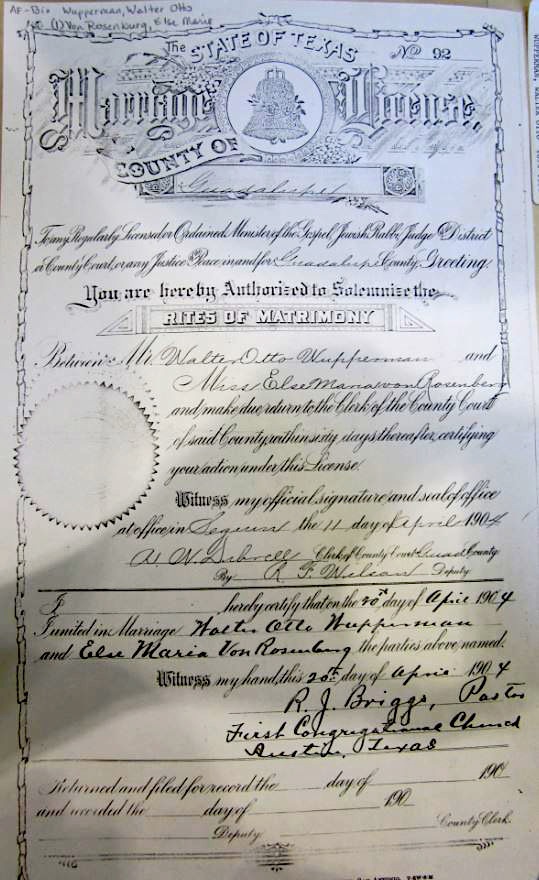 AF-Bio Wupperman, Walter Otto
(1) Von Rosenburg, Else Marie
The STATE OF TEXAS
No 92
Marriage License
COUNTY OF
Guadalupe
To any Regularly Licensed or Ordained Minister of the Gospel, Jewish Rabbi, Judge District
or County Court, or any Justice Peace, in and for Guadalupe County, Greeting:
You are hereby Authorized to Solemnize the
RITES OF MATRIMONY
Between Mr. Walter Otto Wupperman and
Miss Else Maria von Rosenberg
and make due return to the Clerk of the County Court
of said County within sixty days thereafter, certifying
your action under this License.
Witness my official signature and seal of office
at office in Seguin the 11 day of April 1904
Clerk of County Court Guad County
By R. F. Wilson Deputy
I hereby certify that on the 20th day of April 1904
I united in Marriage Walter Otto Wupperman
and Else Maria Von Rosenberg the parties above named.
Witness my hand, this 20th day of April 1904
R. J. Briggs, Pastor
First Congregational Church
Austin, Texas
Returned and filed for record the day of 190
and recorded the day of 190
Deputy. County Clerk.